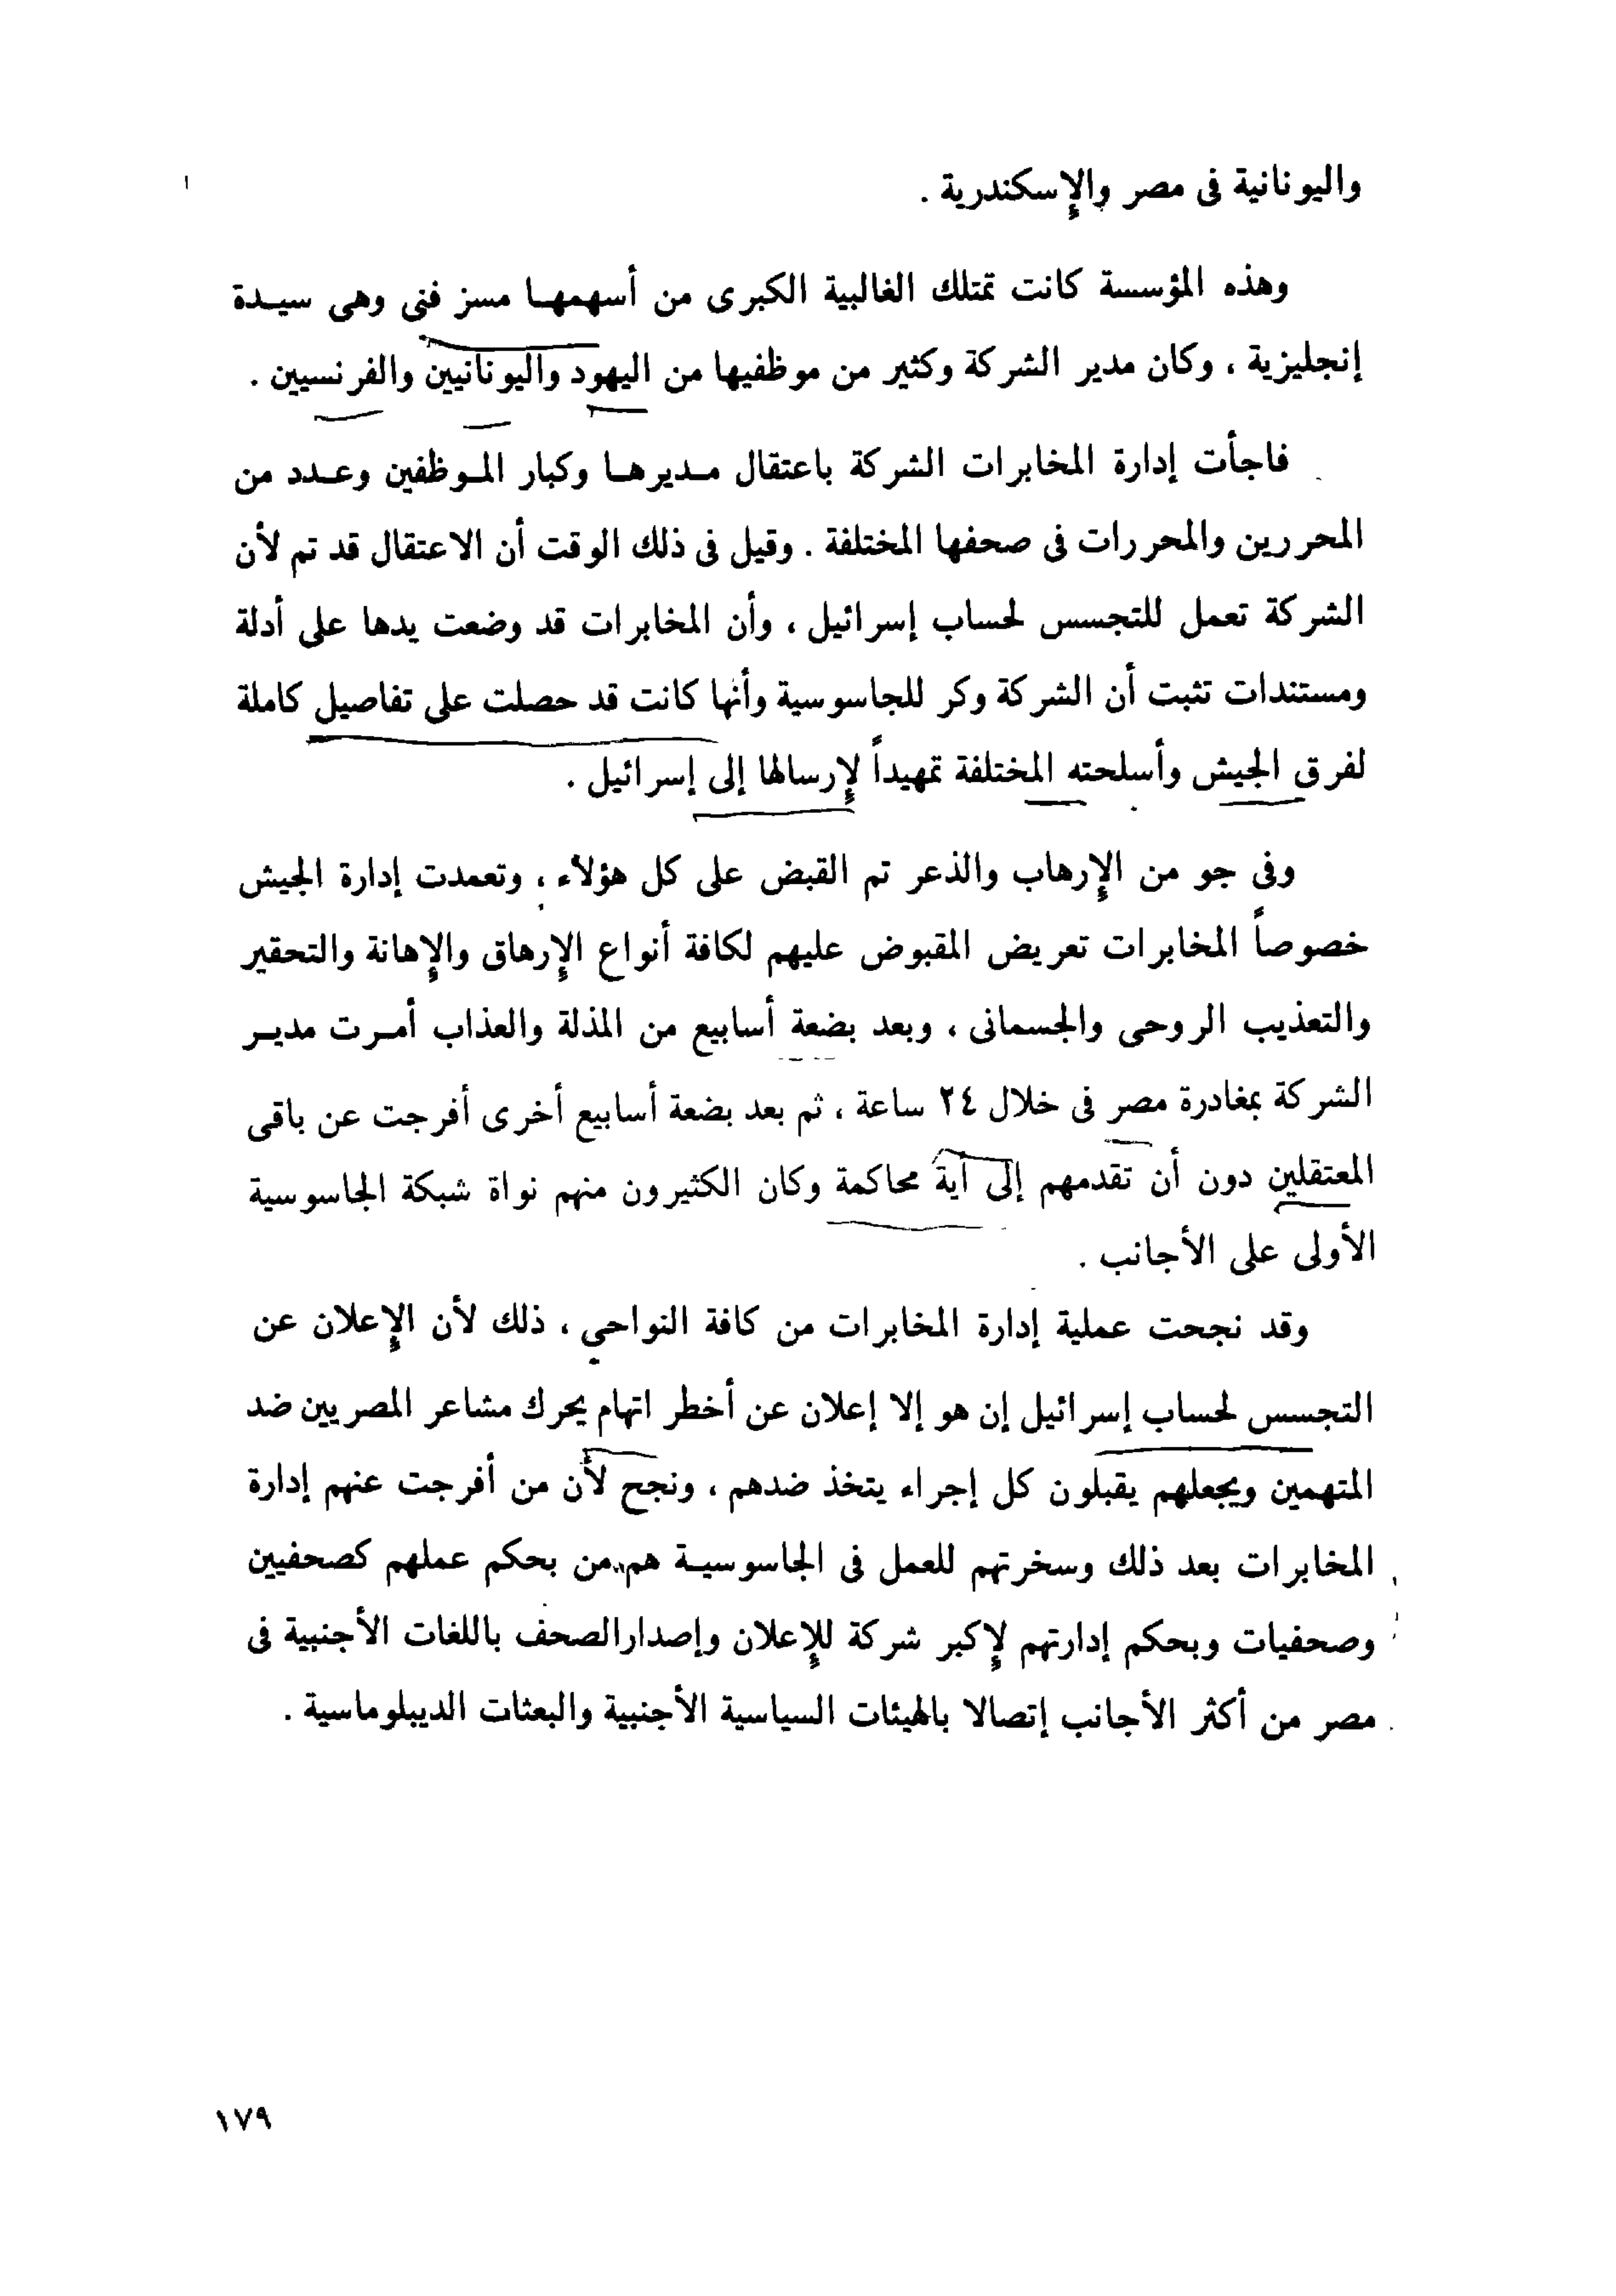 واليونانية فى مصر والإسكندرية .
وهذه المؤسسة كانت تمتلك الغالبية الكبرى من أسهمهـا مسز فنى وهى سيـدة
إنجليزية ، وكان مدير الشركة وكثير من موظفيها من اليهود واليونانيين والفرنسيين .
فاجأت إدارة المخابرات الشركة باعتقال مـديرهـا وكبار المـوظفين وعـدد من
المحررين والمحررات فى صحفها المختلفة . وقيل فى ذلك الوقت أن الاعتقال قد تم لأن
الشركة تعمل للتجسس لحساب إسرائيل ، وأن المخابرات قد وضعت يدها على أدلة
ومستندات تثبت أن الشركة وكر للجاسوسية وأنها كانت قد حصلت على تفاصيل كاملة
لفرق الجيش وأسلحته المختلفة تمهيداً لإرسالها إلى إسرائيل .
وفى جو من الإرهاب والذعر تم القبض على كل هؤلاء ، وتعمدت إدارة الجيش
خصوصاً المخابرات تعريض المقبوض عليهم لكافة أنواع الإرهاق والإهانة والتحقير
والتعذيب الروحى والجسمانى ، وبعد بضعة أسابيع من المذلة والعذاب أمـرت مديـر
الشركة بمغادرة مصر فى خلال ٢٤ ساعة ، ثم بعد بضعة أسابيع أخرى أفرجت عن باقى
المعتقلين دون أن تقدمهم إلى أية محاكمة وكان الكثيرون منهم نواة شبكة الجاسوسية
الأولى على الأجانب .
وقد نجحت عملية إدارة المخابرات من كافة النواحي ، ذلك لأن الإعلان عن
التجسس لحساب إسرائيل إن هو إلا إعلان عن أخطر اتهام يحرك مشاعر المصريين ضد
المتهمين ويجعلهم يقبلون كل إجراء يتخذ ضدهم ، ونجح لأن من أفرجت عنهم إدارة
المخابرات بعد ذلك وسخرتهم للعمل فى الجاسوسيـة هم من بحكم عملهم كصحفيين
وصحفيات وبحكم إدارتهم لإكبر شركة للإعلان وإصدارالصحف باللغات الأجنبية فى
مصر من أكثر الأجانب إتصالا بالهيئات السياسية الأجنبية والبعثات الديبلوماسية .
١٧٩